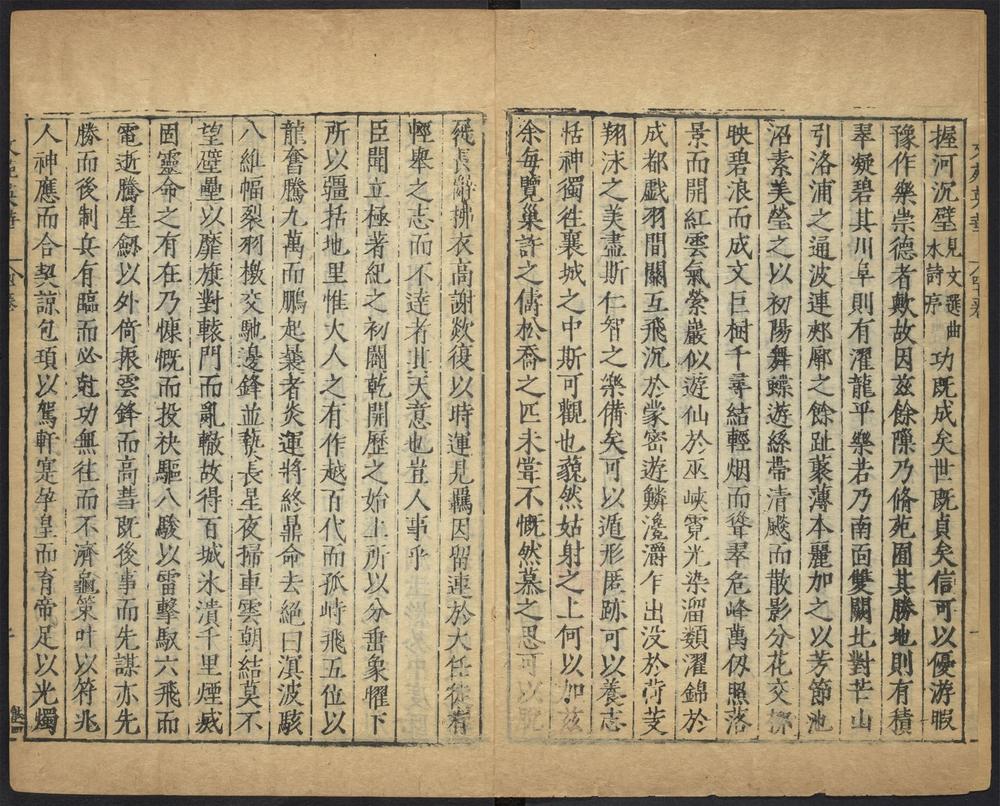 握河沉璧見文選曲水詩序功既成矣世既貞矣信可以優游暇
豫作樂崇德者歟故因茲餘隙乃脩苑囿其勝地則有積
翠凝碧其川阜則有濯龍平樂若乃南面雙闕北對芒山
引洛浦之通波連郟廓之餘趾蓑薄本麗加之以芳節池
沼素美瑩之以初陽舞蝶遊絲帶清颸而散影分花交
映碧浪而成文巨樹千尋結輕烟而聳翠危峰萬仞照落
景而開紅雲氣縈巖似遊仙於巫峽霓光染溜類濯錦於
成都戲羽間關互飛沉於蒙密遊鱗瀺灂乍出没於荷芰
翔沫之美盡斯仁智之樂備矣可以遁形匿跡可以養志
恬神獨徃襄城之中斯可觀也藐然姑射之上何以加茲
余每覽巢許之儔松喬之匹未甞不慨然慕之思可以脱
屣長辭拂衣高謝欻復以時運見羈因留連於大任徒有
輕舉之志而不達者其天意也豈人事乎
臣聞立極著紀之初闢乾開歷之始上所以分垂象曜下
所以疆括地里惟大人之有作越百代而孤峙飛五位以
龍奮騰九萬而鵬起曩者炎運將終鼎命去絕曰滇波駭
八維幅裂羽檄交馳邊鋒並執長星夜掃車雲朝結莫不
望壁壘以靡旗對轅門而亂轍故得百城氷潰千里煙滅
固靈命之有在乃慷慨而投袂驅八駿以雷擊馭六飛而
電逝騰星劒以外倚振雲鋒而高彗既後事而先謀亦先
勝而後制兵有臨而必尅功無往而不濟龜策叶以符兆
人神應而合契諒包頊以駕軒寔孕皇而育帝足以光燭